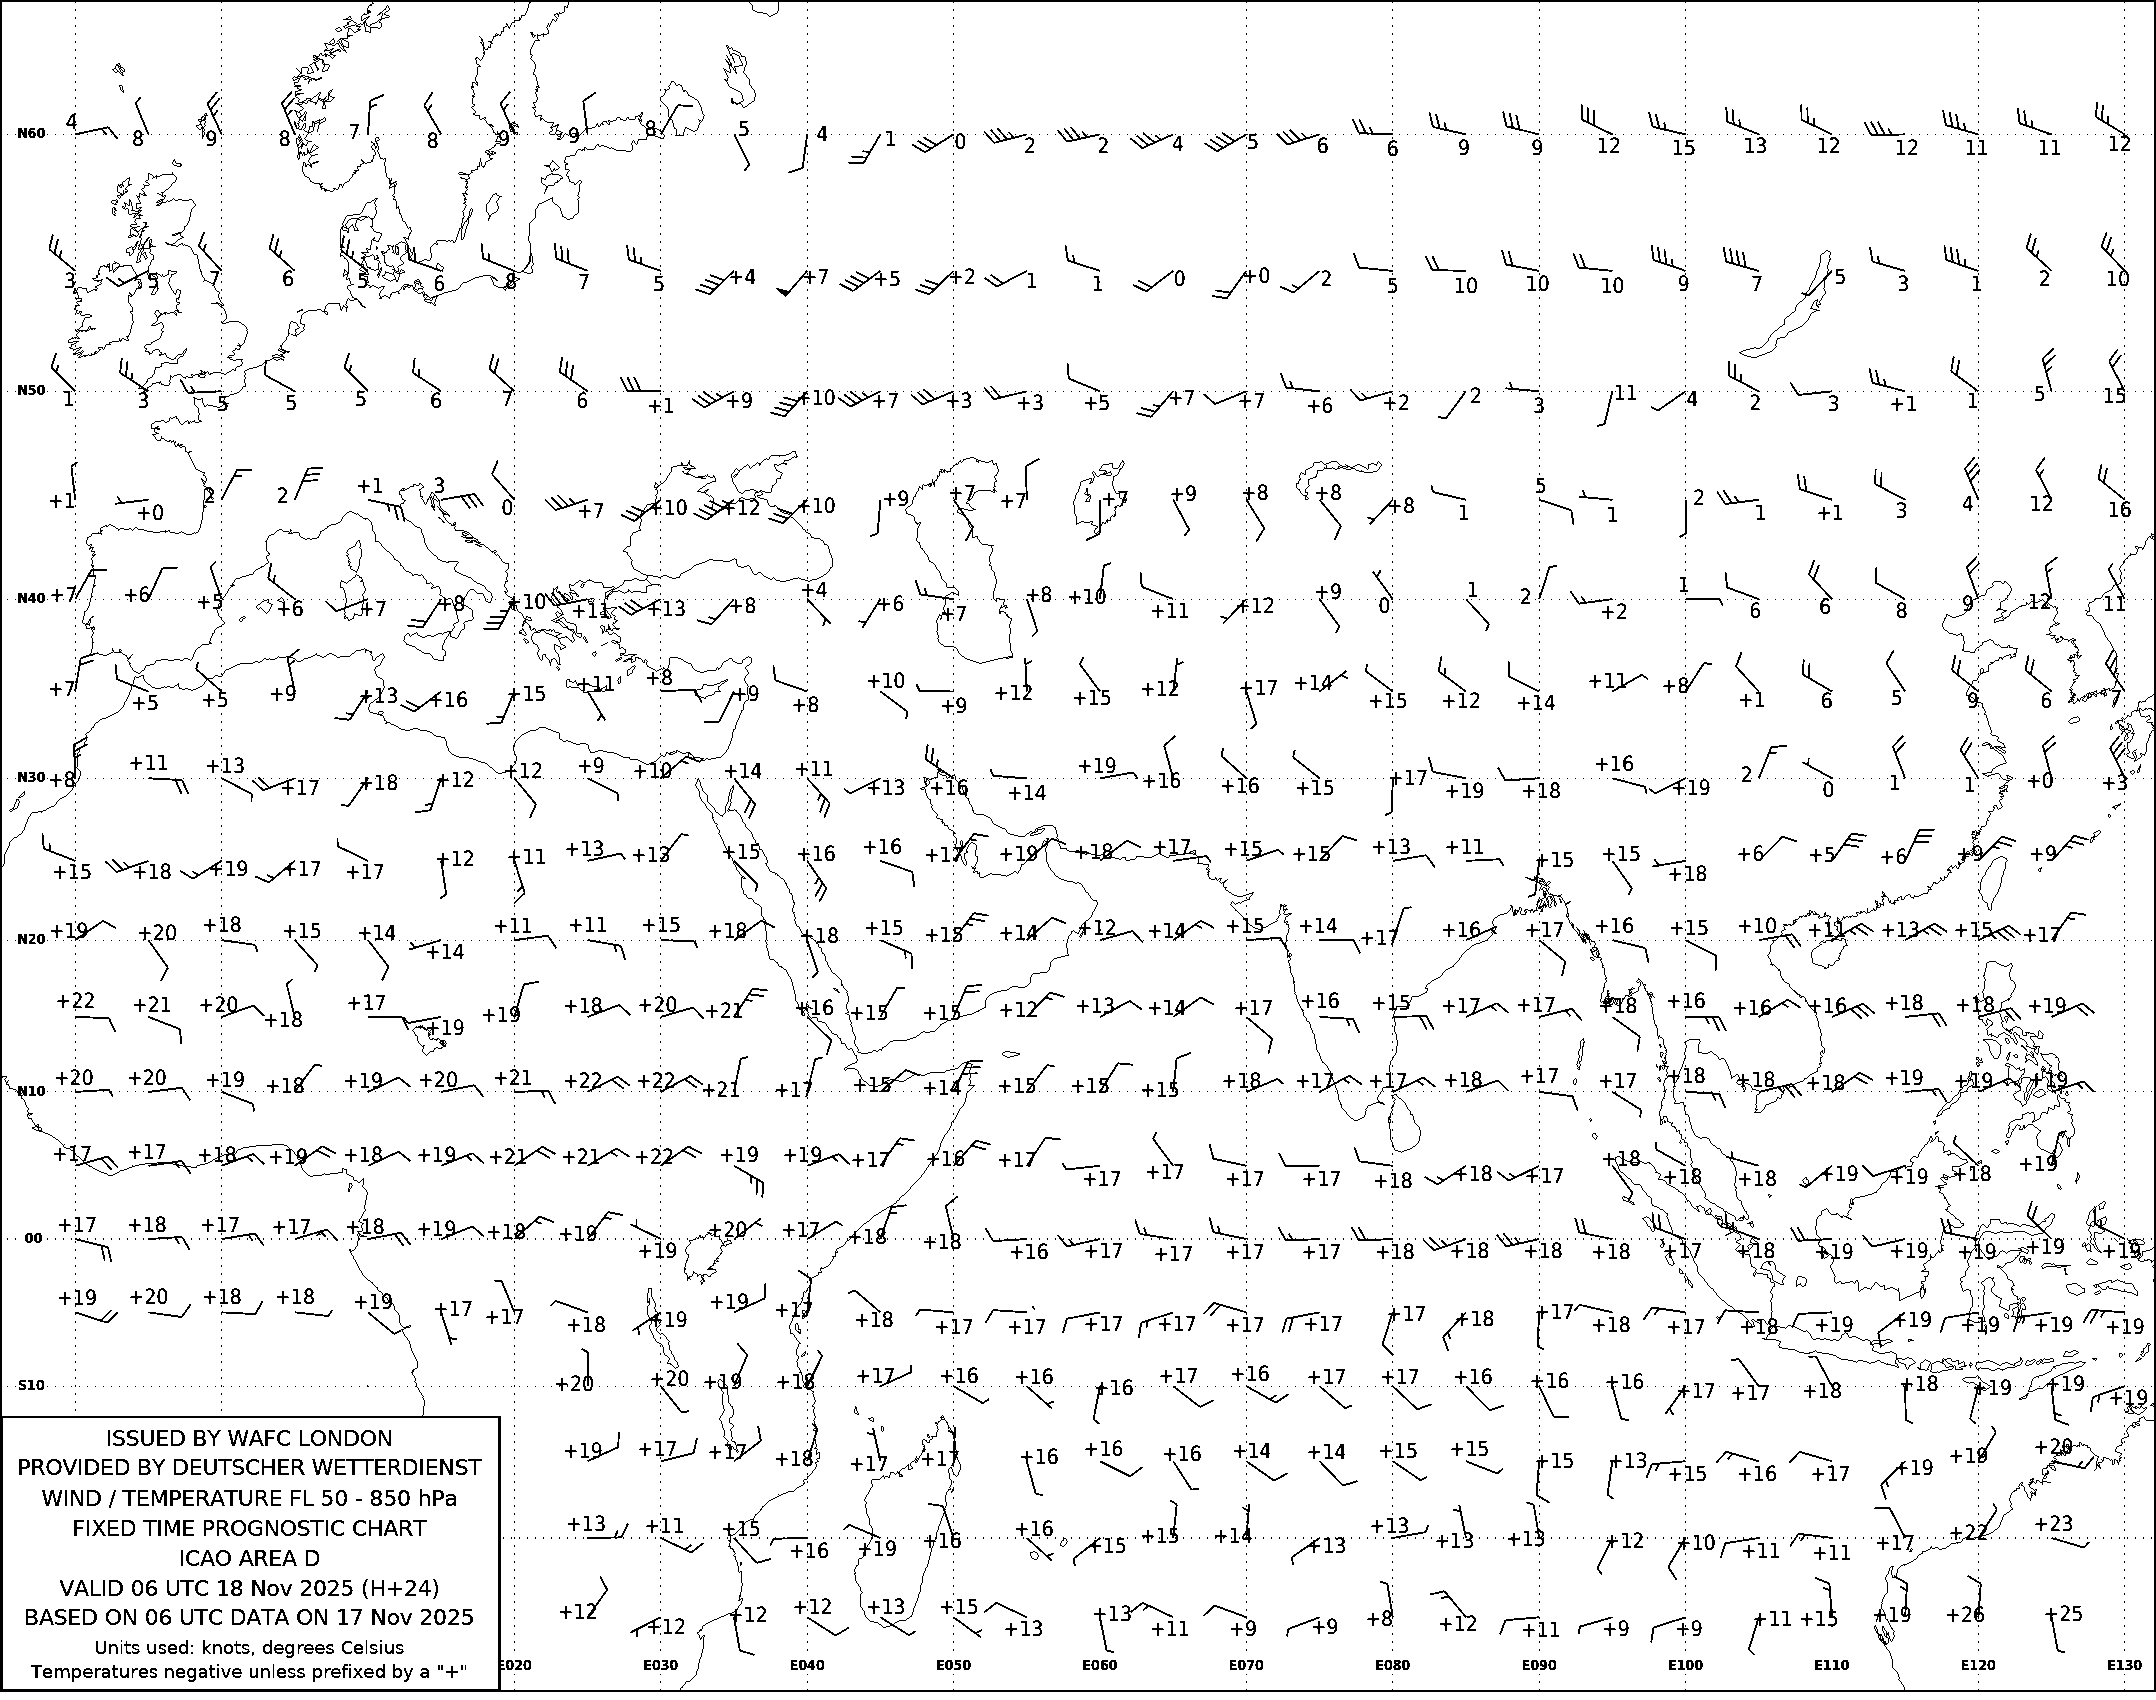 4 8 9 8 7 8 9 9 8 5 4 1 0 2 2 4 5 6 6 9 9 12 15 13 12 12 11 11 12
N60
3 5 7 6 5 6 8 7 5 +4 +7 +5 +2 1 1 0 +0 2 5 10 10 10 9 7 5 3 1 2 10
N50
1 3 5 5 5 6 7 6 +1 +9 +10 +7 +3 +3 +5 +7 +7 +6 +2 2 3 11 4 2 3 +1 1 5 15
+1 +0 2 2 +1 3 0 +7 +10 +12 +10 +9 +7 +7 +7 +9 +8 +8 +8 1 5 1 2 1 +1 3 4 12 16
N40
+7 +6 +5 +6 +7 +8 +10 +11 +13 +8 +4 +6 +7 +8 +10 +11 +12 +9 0 1 2 +2 1 6 6 8 9 12 11
+7 +5 +5 +9 +13 +16 +15 +11 +8 +9 +8 +10 +9 +12 +15 +12 +17 +14 +15 +12 +14 +11 +8 +1 6 5 9 6 7
N30
+8 +11 +13 +17 +18 +12 +12 +9 +10 +14 +11 +13 +16 +14 +19 +16 +16 +15 +17 +19 +18 +16 +19 2 0 1 1 +0 +3
+15 +18 +19 +17 +17 +12 +11 +13 +13 +15 +16 +16 +17 +19 +18 +17 +15 +15 +13 +11 +15 +15 +18 +6 +5 +6 +9 +9
N20
+19 +20 +18 +15 +14 +14 +11 +11 +15 +18 +18 +15 +15 +14 +12 +14 +15 +14 +17 +16 +17 +16 +15 +10 +11 +13 +15 +17
+22 +21 +20 +18 +17 +19 +19 +18 +20 +21 +16 +15 +15 +12 +13 +14 +17 +16 +15 +17 +17 +18 +16 +16 +16 +18 +18 +19
N10
+20 +20 +19 +18 +19 +20 +21 +22 +22 +21 +17 +15 +14 +15 +15 +15 +18 +17 +17 +18 +17 +17 +18 +18 +18 +19 +19 +19
+17 +17 +18 +19 +18 +19 +21 +21 +22 +19 +19 +17 +16 +17 +17 +17 +17 +17 +18 +18 +17 +18 +18 +18 +19 +19 +18 +19
00
+17 +18 +17 +17 +18 +19 +18 +19 +19 +20 +17 +18 +18 +16 +17 +17 +17 +17 +18 +18 +18 +18 +17 +18 +19 +19 +19 +19 +19
+19 +20 +18 +18 +19 +17 +17 +18 +19 +19 +17 +18 +17 +17 +17 +17 +17 +17 +17 +18 +17 +18 +17 +18 +19 +19 +19 +19 +19
S10
+20 +20 +19 +18 +17 +16 +16 +16 +17 +16 +17 +17 +16 +16 +16 +17 +17 +18 +18 +19 +19 +19
+19 +17 +17 +18 +17 +17 +16 +16 +16 +14 +14 +15 +15 +15 +13 +15 +16 +17 +19 +19 +20
+13 +11 +15 +16 +19 +16 +16 +15 +15 +14 +13 +13 +13 +13 +12 +10 +11 +11 +17 +22 +23
+12 +12 +12 +12 +13 +15 +13 +13 +11 +9 +9 +8 +12 +11 +9 +9 +11 +15 +19 +26 +25
E020 E030 E040 E050 E060 E070 E080 E090 E100 E110 E120 E130
ISSUED BY WAFC LONDON
PROVIDED BY DEUTSCHER WETTERDIENST
WIND / TEMPERATURE FL 50 - 850 hPa
FIXED TIME PROGNOSTIC CHART
ICAO AREA D
VALID 06 UTC 18 Nov 2025 (H+24)
BASED ON 06 UTC DATA ON 17 Nov 2025
Units used: knots, degrees Celsius
Temperatures negative unless prefixed by a "+"